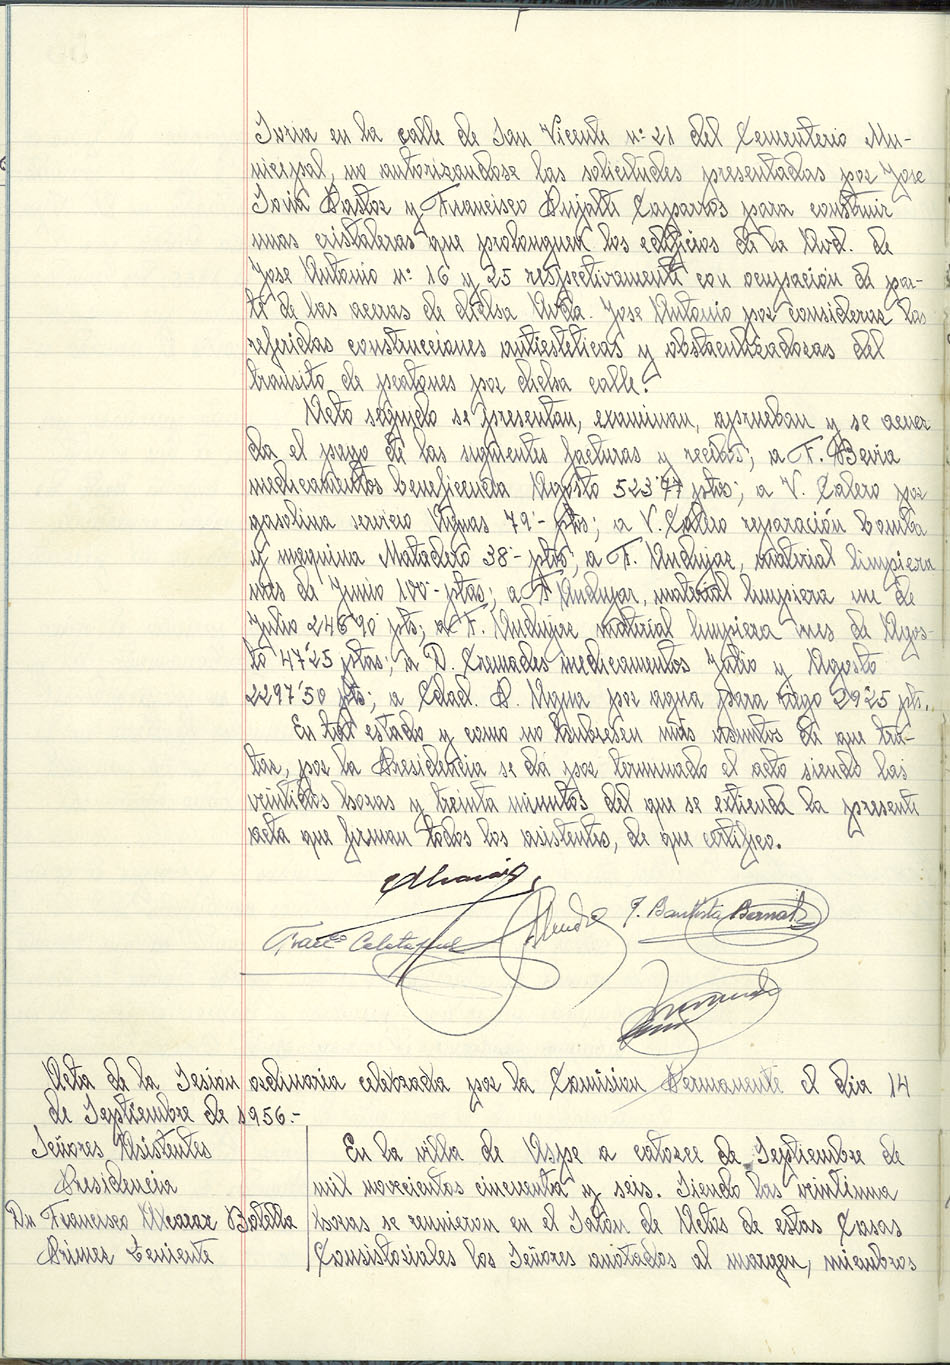 Soria en la calle de San Vicente nº 21 del Cementerio Mu-
nicipal, no autorizandose las solicitudes presentadas por Jose
Soria Pastor y Francisco Pujalte Caparros para construir
unas cristaleras que prolonguen los edificios de la Avd. de
Jose Antonio nº 16 y 25 respectivamente con ocupacion de par-
te de las aceras de dicha Avda. Jose Antonio por considerar las
referidas construcciones antiesteticas y obstaculizadoras del
transito de peatones por dicha calle.
Acto seguido se presentan, examinan, aprueban y se acuer
da el pago de las siguientes facturas y recibos; a F. Beviá
medicamentos beneficencia Agosto 523'77 ptas; a V. Calero por
gasolina servicio Aguas 79'- ptas; a V. Calero reparación bomba
y maquina Matadero 38'- ptas; a F. Andujar, material limpieza
mes de Junio 100'- ptas; a F Andujar, material limpieza m de
Julio 246'90 pts; a F. Andujar material limpieza mes de Agos-
to 47'25 ptas; a D. Cremades medicamentos Julio y Agosto
2297'50 pts; a Cdad. P. Agua por agua para riego 29'25 pts.
En tal estado y como no hubiesen más asuntos de que tra-
tar, por la Presidencia se dá por terminado el acto siendo las
veintidos horas y treinta minutos del que se extiende la presente
acta que firman todos los asistentes, de que certifico.
J. Bautista Bernal
Acta de la Sesion ordinaria celebrada por la Comision Permanente el dia 14
de Septiembre de 1956.-
Señores Asistentes
Presidencia
Dn Francisco Alcaraz Botella
Primer Teniente
En la villa de Aspe a catorce de Septiembre de
mil novecientos cincuenta y seis. Siendo las veintiuna
horas se reunieron en el Salón de Actos de estas Casas
Consistoriales los Señores anotados al margen, miembros